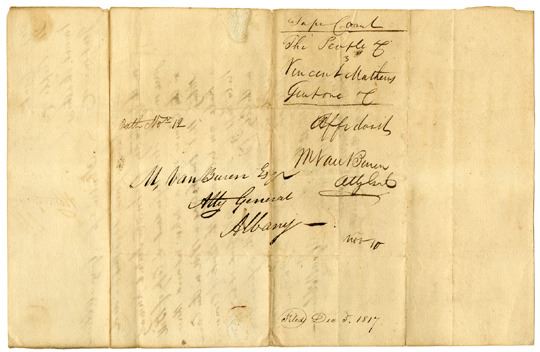 Supr Court
The People &
vs
Vincent Mathews
Gent one &
Affidavit
M Van Buren
Atty Genl
Nov 10
Filed Dec 5. 1817
Nov 12
M, Van Buren Esqr
Atty General
Albany